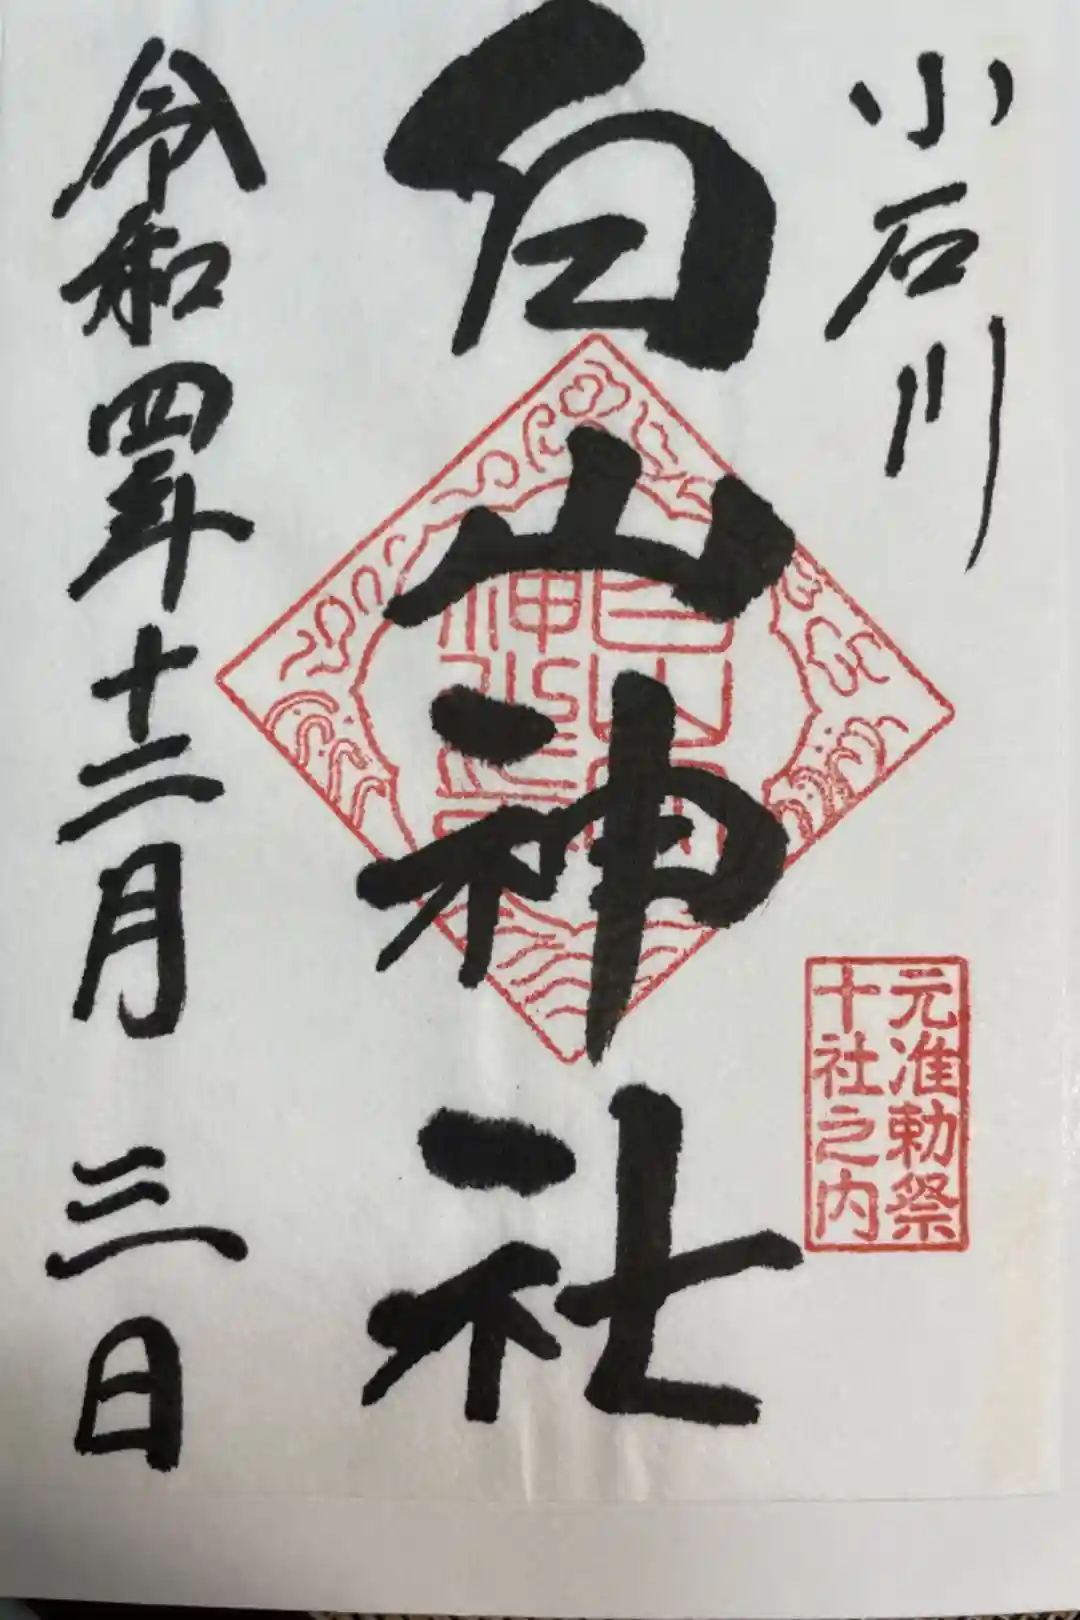 小石川
元准勅祭
十社之内
白山神社
令和四年十二月三日